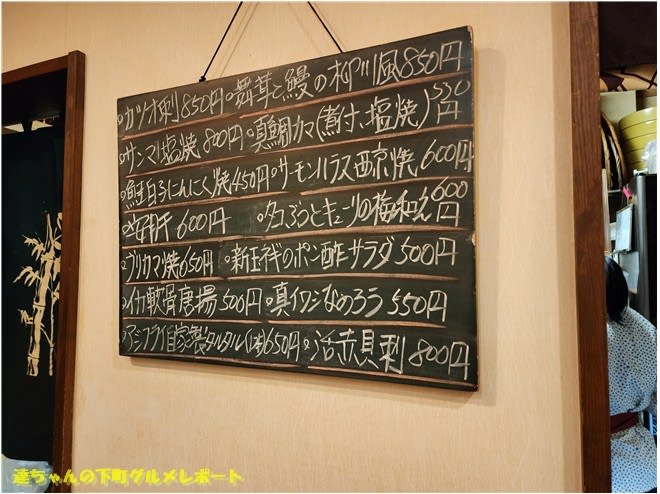 ◦カツオ刺 850円 ◦舞茸と鰻の柳川風 850円
◦サンマ塩焼 800円 ◦真鯛カマ(煮付、塩焼) 550円
◦鮭白子にんにく焼 450円 ◦サーモンハラス西京焼 600円
600円 ◦タコぶつとキューリの梅和え 600円
◦ブリカマ焼 650円 ◦新玉ネギのポン酢サラダ 500円
◦イカ軟骨唐揚 500円 ◦真イワシなめろう 550円
◦アジフライ自家製タルタル(1本) 650円 ◦活赤貝刺 800円
達ちゃんの下町グルメレポート